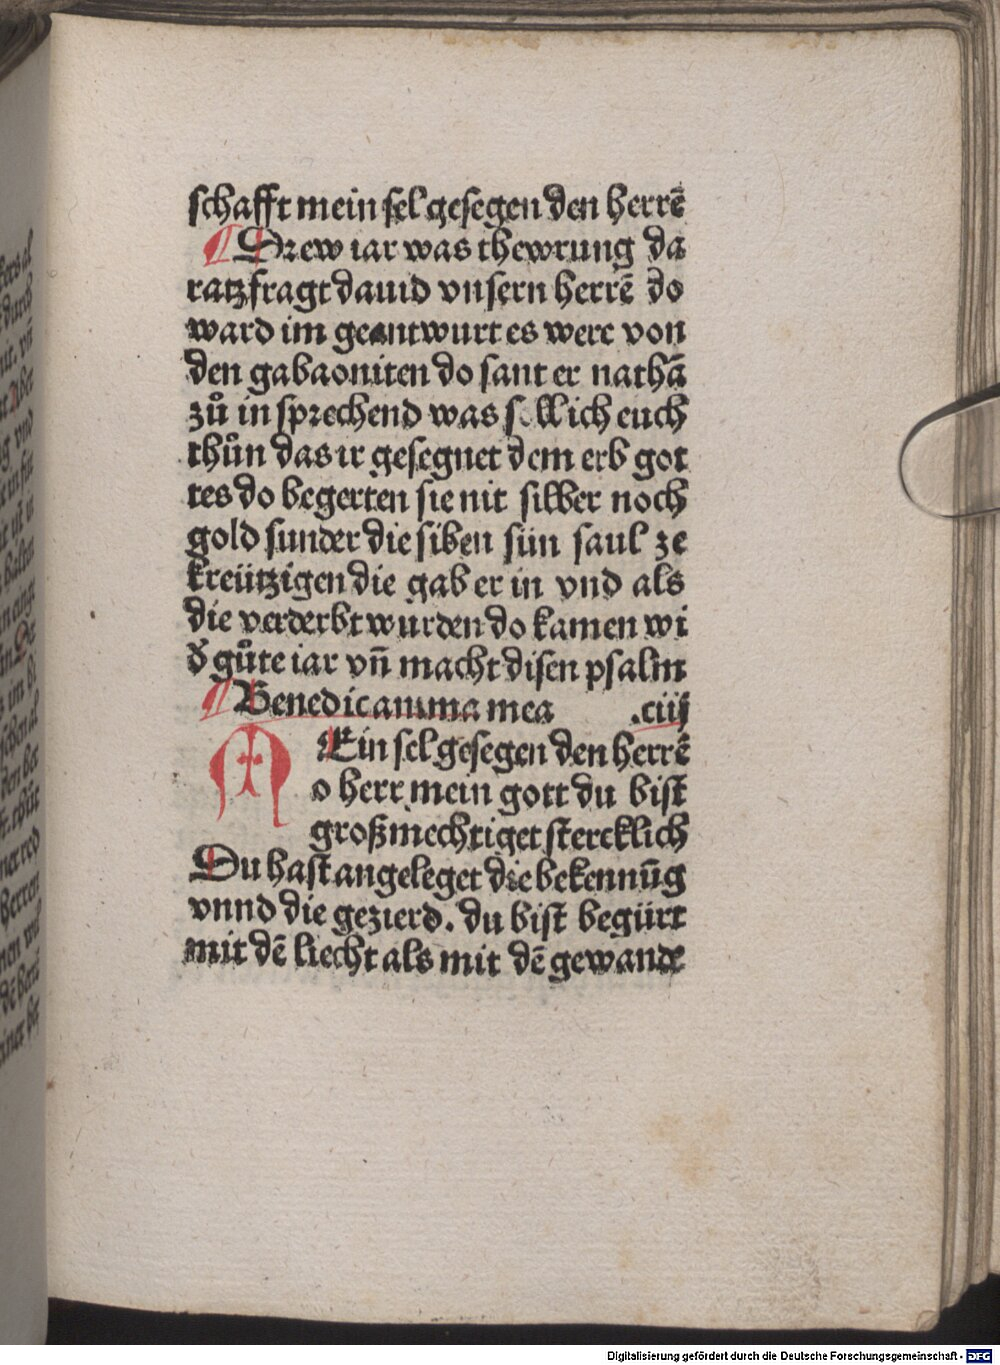 schafft mein sel gesegen den herrē
¶ Drew iar was thewrung da
ratz fragt dauid vnsern herrē do
ward im geantwurt es were von
den gabaoniten do sant er nathā
zů in sprechend was soll ich euch
thůn das ir gesegnet dem erb got
tes do begerten sie nit silber noch
gold sunder die siben sün saul ze
kreützigen die gab er in vnd als
die verderbt wurden do kamen wi
d̕ gůte iar vñ macht disen psalm
¶ Benedic anima mea .ciij
MEin sel gesegen den herrē
o herr mein gott du bist
großmechtiget stercklich
Du hast angeleget die bekennūg
vnnd die gezierd. du bist begürt
mit dē liecht als mit dē gewande
Digitalisierung gefördert durch die Deutsche Forschungsgemeinschaft - DFG